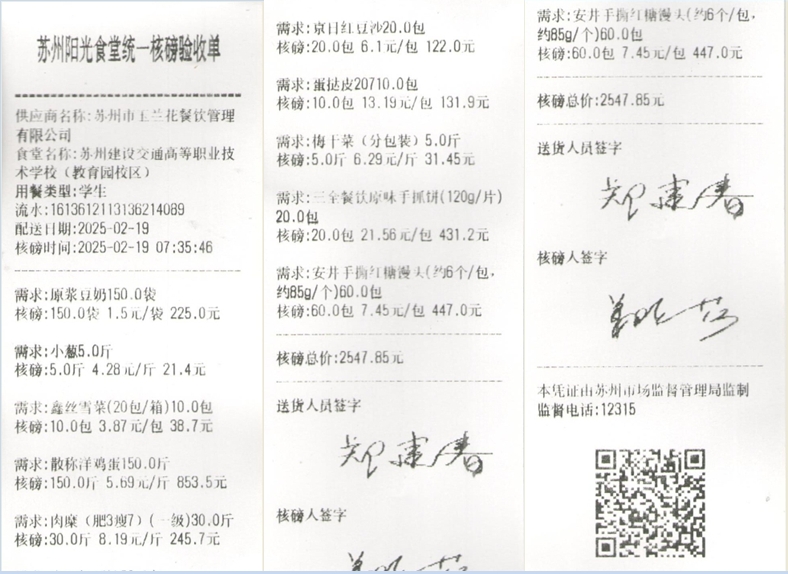 苏州阳光食堂统一核磅验收单
供应商名称:苏州市玉兰花餐饮管理
有限公司
食堂名称:苏州建设交通高等职业技
术学校（教育园校区）
用餐类型:学生
流水:1613612113136214089
配送日期:2025-02-19
核磅时间:2025-02-19 07:35:46
需求:原浆豆奶150.0袋
核磅:150.0袋 1.5元/袋 225.0元
需求:小葱5.0斤
核磅:5.0斤 4.28元/斤 21.4元
需求:鑫丝雪菜(20包/箱)10.0包
核磅:10.0包 3.87元/包 38.7元
需求:散称洋鸡蛋150.0斤
核磅:150.0斤 5.69元/斤 853.5元
需求:肉糜（肥3瘦7）(一级)30.0斤
核磅:30.0斤 8.19元/斤 245.7元
需求:京日红豆沙20.0包
核磅:20.0包 6.1元/包 122.0元
需求:蛋挞皮20710.0包
核磅:10.0包 13.19元/包 131.9元
需求:梅干菜（分包装）5.0斤
核磅:5.0斤 6.29元/斤 31.45元
需求:三全餐饮原味手抓饼(120g/片)
20.0包
核磅:20.0包 21.56元/包 431.2元
需求:安井手撕红糖馒头(约6个/包,
约85g/个)60.0包
核磅:60.0包 7.45元/包 447.0元
核磅总价:2547.85元
送货人员签字
核磅人签字
需求:安井手撕红糖馒头(约6个/包,
约85g/个)60.0包
核磅:60.0包 7.45元/包 447.0元
核磅总价:2547.85元
送货人员签字
核磅人签字
本凭证由苏州市场监督管理局监制
监督电话:12315